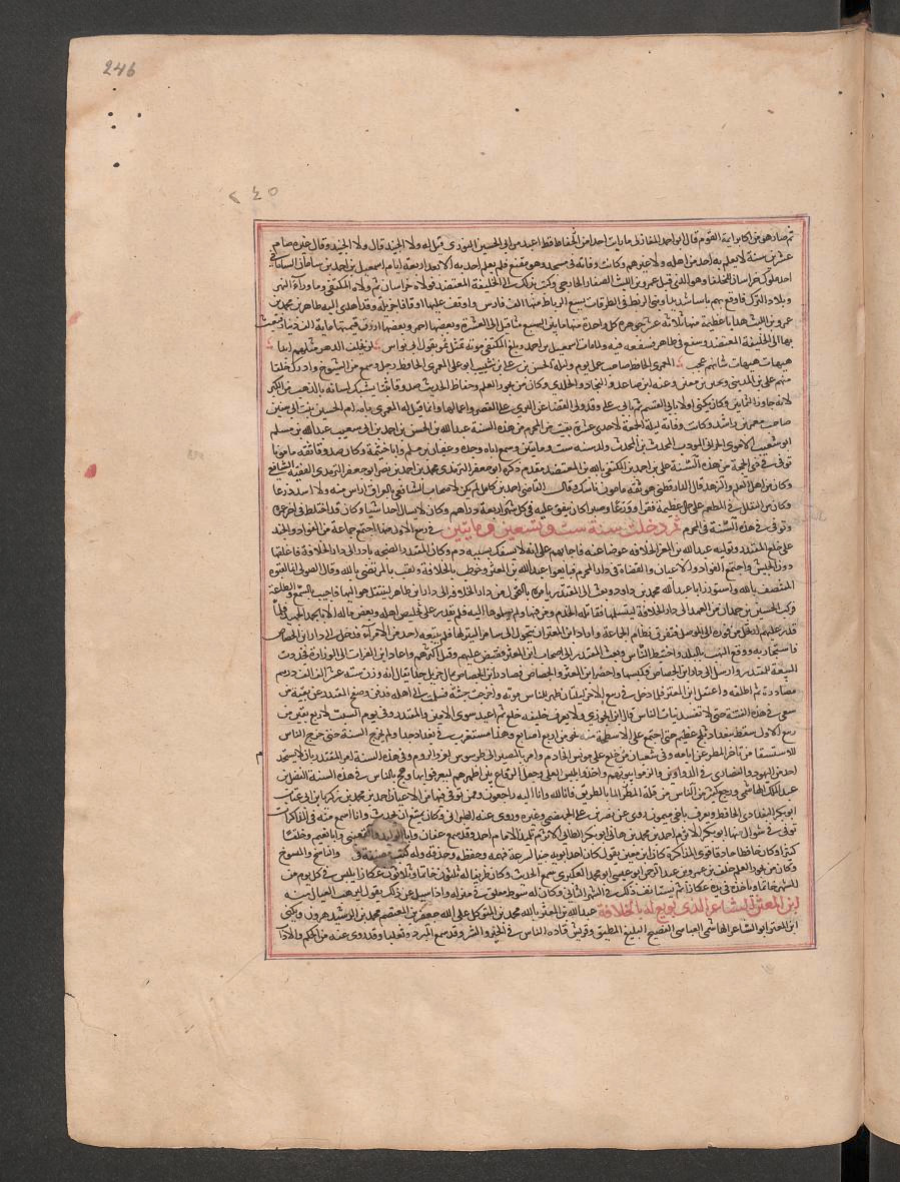 246
٢٤٥
ثم صار هو من اكابر ايمة القوم قال ابو احمد المغازلي ما رايت احدا من الحفاظ قط اعبد من ابي الحسين النوري قيل له ولا الجنيد قال ولا الجنيد وقال غيره صام
عشرين سنة لا يعلم به احد من اهله ولا غيرهم وكانت وفاته في مسجد وهو مقنع فلم يعلم احد به الا بعد اربعة ايام اسمعيل بن احمد بن سامان الساماني
احد ملوك خراسان للخلفا وهو الذي قتل عمرو بن الليث الصفار الخارجي وكتب بذلك الى الخليفة المعتضد فولاه خراسان ثم ولاه المكتفي وما وراء النهر
وبلاد الترك فاوقع بهم باسا شديدا وبنى الربط في الطرقات يسع الرباط منها الف فارس واوقف عليها اوقافا جزيلة وقد اهدى اليه طاهر بن محمد بن
عمرو بن الليث هدايا عظيمة منها ثلاثه عشر جوهرة كل واحدة منها ما بين السبع مثاقيل الى العشرة وبعضها احمر وبعضها ازرق قيمتها ماية الف دينار فبعث
بها الى الخليفة المعتضد وشفع في طاهر فشفعه فيه ولما مات اسمعيل بن احمد وبلغ المكتفي موته تمثل بقول ابي نواس لن يخلف الدهر مثلهم ابدا
هيهات هيهات شانهم عجب المعمري الحافظ صاحب عمل يوم وليلة الحسن بن علي بن شبيب ابو علي المعمري الحافظ رحل وسمع من الشيوخ وادرك خلقا
منهم علي بن المديني ويحيى بن معين وعنه ابن صاعد والنجاد والخلدي وكان من بحور العلم وحفاظ الحديث صدوقا ثبتا يشبك اسنانه بالذهب من الكبر
لانه جاوز الثمانين وكان يكنى اولا بابي القسم ثم بابي علي وقد ولي القضا عن البرتي على القصر واعمالها وانما قيل له المعمري بامه ام الحسين بنت ابي سفين
صاحب معمر بن راشد وكانت وفاته ليلة الجمعة لاحدى عشرة بقيت من المحرم من هذه السنة عبد الله بن الحسن بن احمد بن ابي شعيب عبد الله بن مسلم
ابو شعيب الاموي الحراني المودب المحدث بن المحدث ولد سنه ست ومايتين وسمع اباه وجده وعفان بن مسلم وابا خيثمة وكان صدوقا ثقته مامونا
توفي في ذي الحجة من هذه السنة علي بن احمد المكتفي بالله بن المعتضد وتقدم ذكره ابو جعفر الترمذي محمد بن احمد بن نصر ابو جعفر الترمذي الفقيه الشافعي
وكان من اهل العلم والزهد قال الدارقطني هو ثقة مامون ناسك وقال القاضي احمد بن كامل لم يكن لاصحاب الشافعي بالعراق اراس منه ولا اشد ورعا
وكان من التقلل في المطعم على حال عظيمة فقرا وورعا وصبرا كان ينفق عليه في كل شهر اربعة دراهم وكان لا يسال احدا شيا وكان قد اختلط في اخر عمره
وتوفي في هذه السنة في المحرم ثم دخلت سنة ست وتسعين ومايتين في ربيع الاول منها اجتمع جماعة من القواد والجند
على خلع المقتدر وتولية عبد الله بن المعز الخلافه عوضا عنه فاجابهم على انه لا يسفك بسببه دم وكان المقتدر قد خرج
دون الجيش واجتمع القواد والاعيان والقضاة في دار المخرم فبايعوا عبد الله بن المعتز وخوطب بالخلافة ولقب بالمرتضي بالله وقال الصولي انما لقبوه
المنتصف بالله واستوزر ابا عبد الله محمد بن داود وبعث الى المقتدر يامره بالتحول من دار الخلافة الى دار ابن طاهر لينتقل هو اليها فاجيب بالسمع والطاعة
فركب الحسين بن حمدان من الغد الى دار الخلافة ليتسلمها فقاتله الخدم ومن فيها ولم يسلموها اليه فلم يقدر على تخليص اهله وبعض ماله الا بالجهد الجهيد فلما
قدر عليهم انتقل من فوره الى الموصل فتفرق نظام الجماعة واراد ابن المعتز ان يتحول الى سامرا لينزلها فلم يتبعه احد من الامرآء فدخل الى دار ابن الجصاص
فاستجار به ووقع النهب بالبلد واختبط الناس وبعث المقتدر الى اصحاب ابن المعتز فقبض عليهم وقتل اكثرهم واعاد ابن الفرات الى الوزارة فجددت
البيعة للمقتدر وارسل الى دار ابن الجصاص فكبسها واحضر ابن المعتز والجصاص فصادر ابن الجصاص بمال جزيل جدا يقال انه وزن سته عشر الف الف درهم
مصادرة ثم اطلقه واعتقل ابن المعتز فلما دخل في ربيع الاخر ليلتان ظهر للناس موته واخرجت جثته فسلمت الى اهله فدفن وصفح المقتدر عن بقية من
سعى في هذه الفتنة حتى لا تفسد نيات الناس قال ابن الجوزي ولا يعرف خليفه خلع ثم اعيد سوى الامين والمقتدر وفي يوم السبت لاربع بقين من
ربيع الاول سقط ببغداد ثلج عظيم حتى اجتمع على الاسطحة منه نحو من اربع اصابع وهذا مستغرب في بغداد جدا ولم تخرج السنة حتى خرج الناس
للاستسقا من تاخر المطر عن ايامه وفي شعبان منها خلع على مونس الخادم وامر بالمسير الى طرسوس لغزو الروم وفي هذه السنة امر المقتدر بان لا يستخدم
احد من اليهود والنصارى في الدواوين والزموا بيوتهم واخذوا بلبس العسلي وجعل الرقاع بين اظهرهم ليعرفوا بها وحج بالناس في هذه السنة الفضل بن
عبد الملك الهاشمي ورجع كثير من الناس من قلة المطر بالطريق فانا لله وانا اليه راجعون وممن توفي فيها من الاعيان احمد بن محمد بن زكريا بن ابي عتاب
ابو بكر البغدادي الحافظ ويعرف باخي ميمون روى عن نصر بن علي الجهضمي وغيره وروى عنه الطبراني وكان يمتنع ان يحدث وانما اسمع منه في المذاكرات
توفي في شوال منها ابو بكر الاثرم احمد بن محمد بن هاني ابو بكر الطائي الاثرم تلميذ الامام احمد وقد سمع عفان وابا الوليد والقعنبي وابا نعيم وخلقا
كثيرا وكان حافظا صادقا قوي المذاكرة كان ابن معين يقول كان احد ابويه جنيا لسرعة فهمه وحفظه وحذقه وله كتب مصنفة في والناسخ والمنسوخ
وكان من بحور العلم خلف بن عمرو بن عبد الرحمن ابو عيسى ابو محمد العكبري سمع الحديث وكان ظريفا له ثلثون خاتما وثلاثون عكازا يلبس في كل يوم من
الشهر خاتما وياخذ في يده عكازا ثم يستانف ذلك في الشهر الثاني وكان له سوط معلق في منزله واذا سيل عن ذلك يقول ليرهب العيال منه
ابن المعتز الشاعر الذي بويع له بالخلافة عبد الله بن المعتز بالله محمد بن المتوكل على الله جعفر بن المعتصم محمد بن الرشيد هرون ويكنى
ابن المعتز ابو الشاعر الهاشمي العباسي الفصيح البليغ المطيق وقريش قادة الناس في الخير والشر وقد سمع المبرد وثعلبا وقد روى عنه من الحكم والاداب